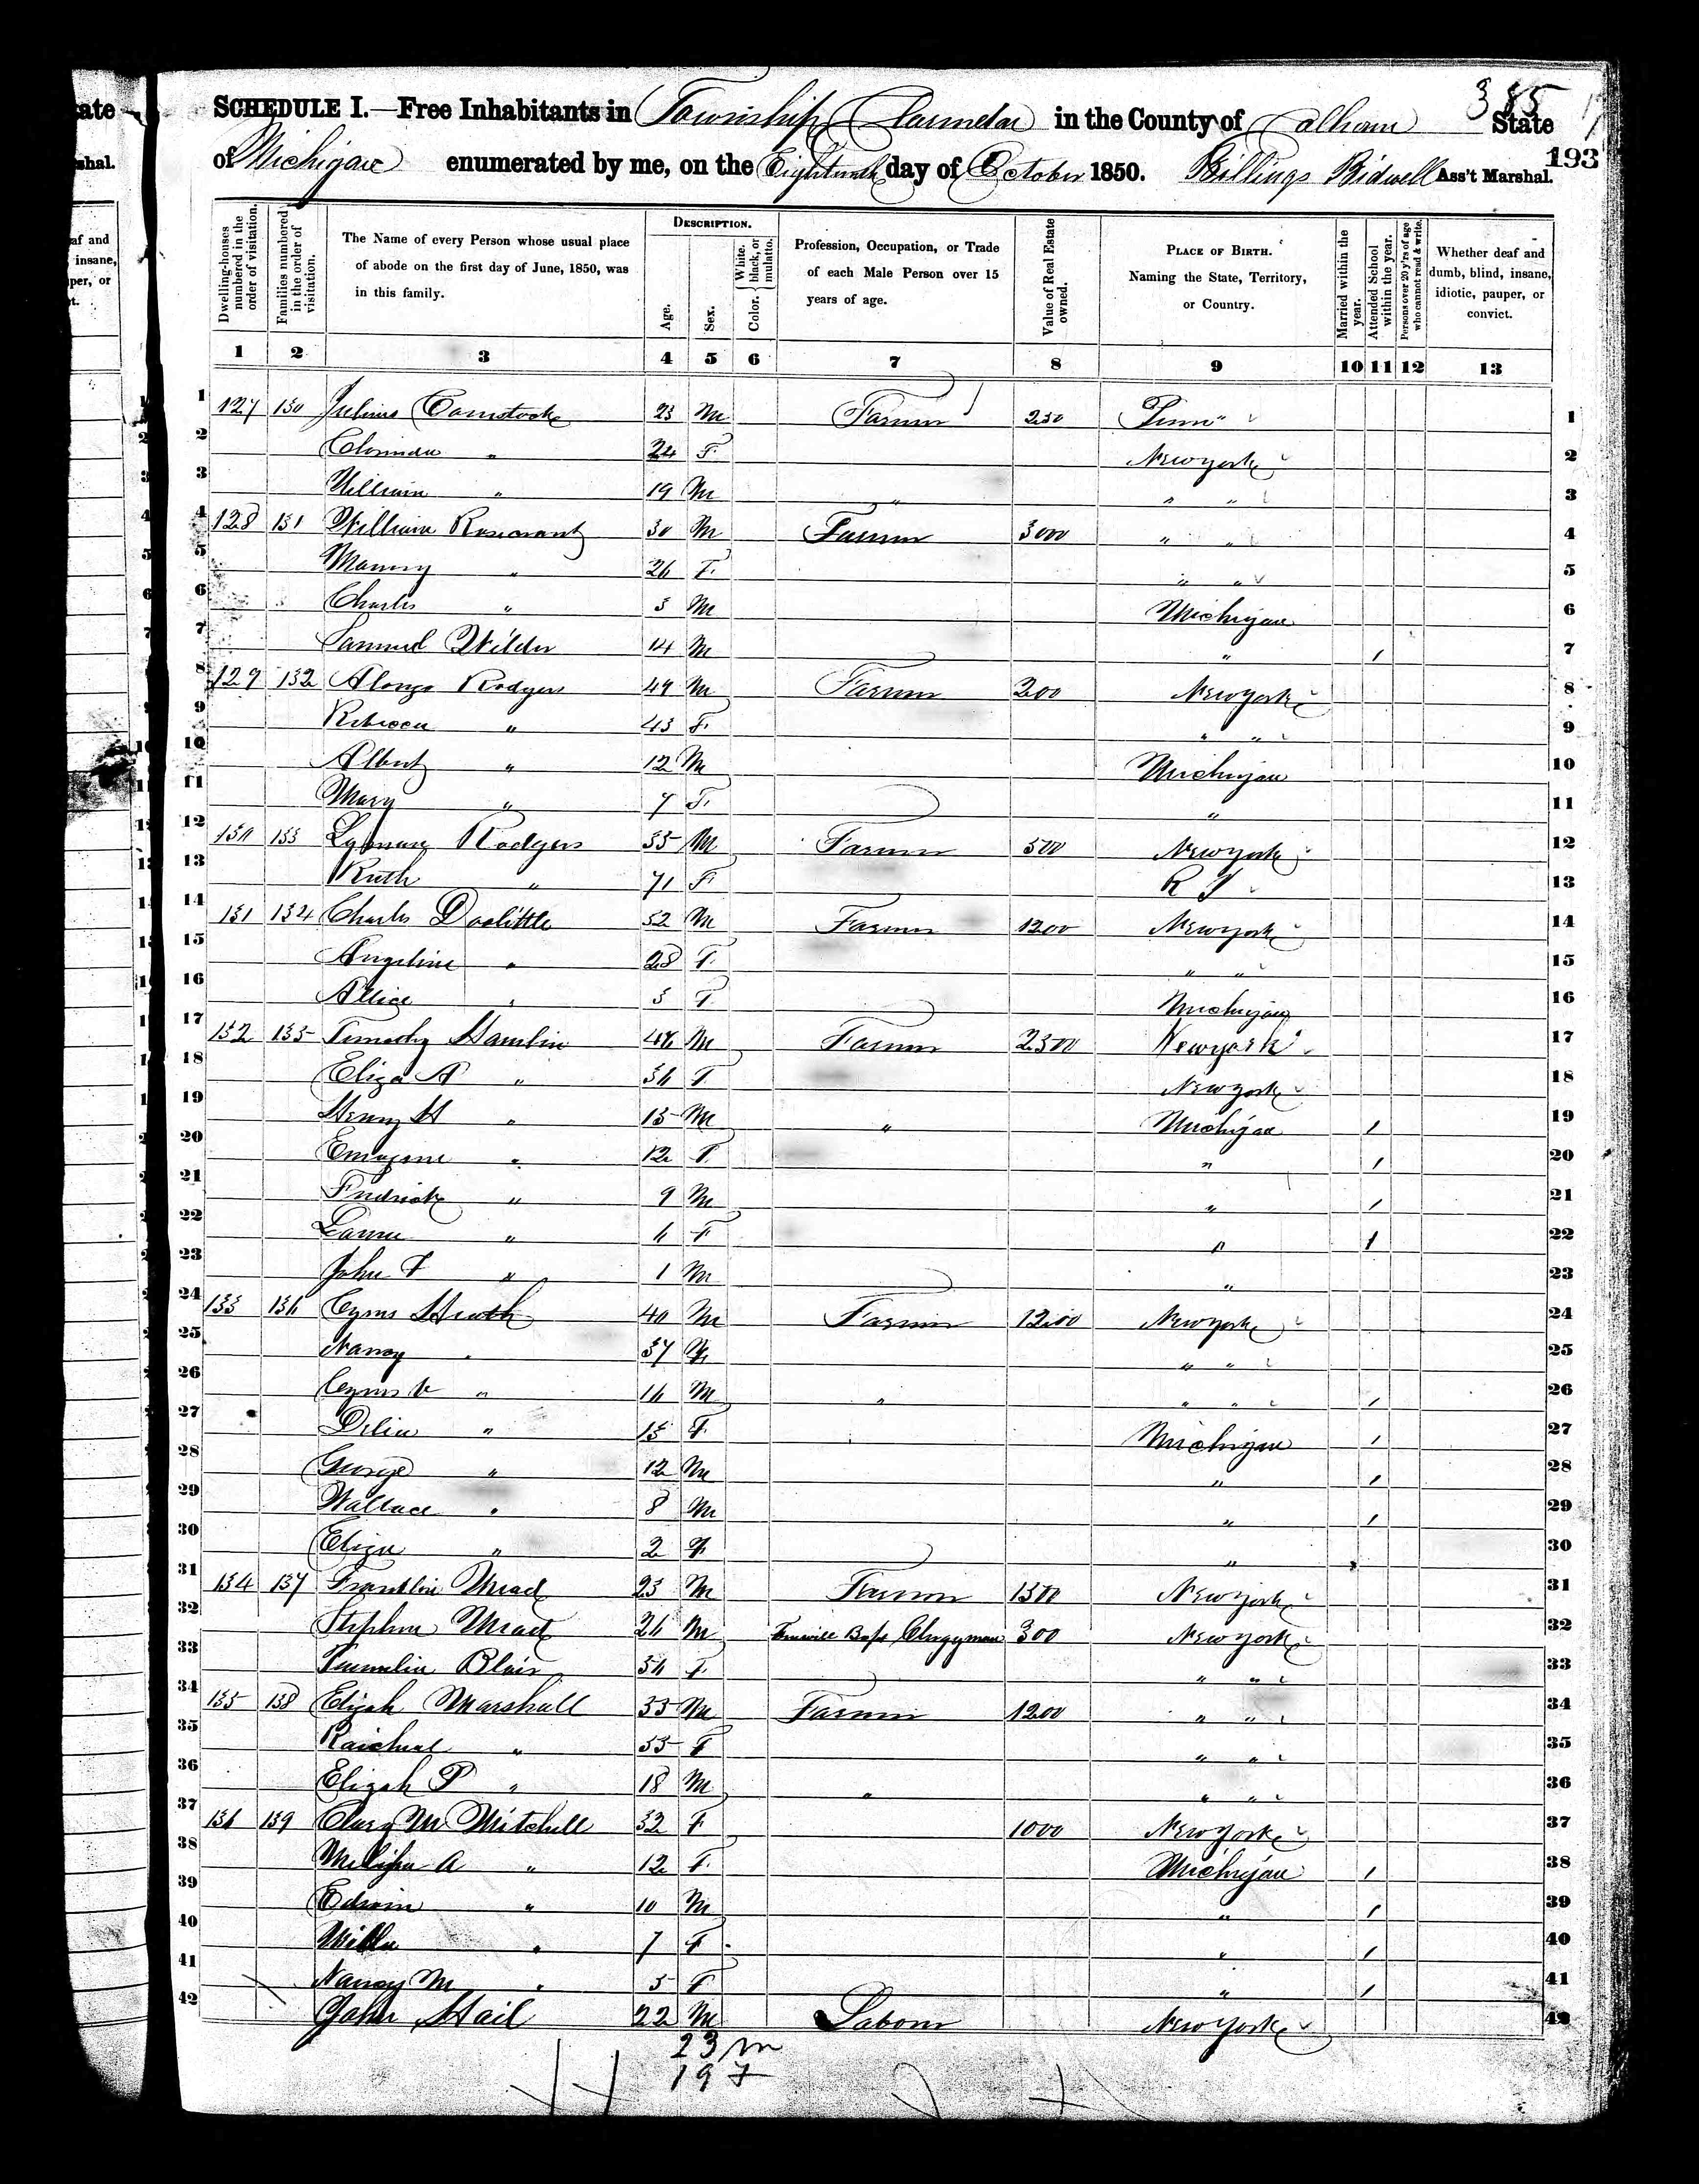 385
SCHEDULE I.—Free Inhabitants in Township Clarendon in the County of Calhoun State
of Michigan enumerated by me, on the Eighteenth day of October 1850. Billings Bidwell Ass't Marshal.
193
Dwelling-houses numbered in the order of visitation.
Families numbered in the order of visitation.
The Name of every Person whose usual place of abode on the first day of June, 1850, was in this family.
DESCRIPTION.
Age.
Sex.
Color. White, black, or mulatto.
Profession, Occupation, or Trade of each Male Person over 15 years of age.
Value of Real Estate owned.
PLACE OF BIRTH. Naming the State, Territory, or Country.
Married within the year.
Attended School within the year.
Persons over 20 y'rs of age who cannot read & write.
Whether deaf and dumb, blind, insane, idiotic, pauper, or convict.
1 2 3 4 5 6 7 8 9 10 11 12 13
1 127 130 Julius Comstock 23 M Farmer 250 Penn" 1
2 " 24 F New york 2
3 William " 19 M " " " 3
4 128 131 William Rosecrantz 30 M Farmer 3000 " " 4
5 " 26 F " " 5
6 Charles " 3 M Michigan 6
7 Samuel Wilder 14 M " / 7
8 129 132 Alonzo Rodgers 49 M Farmer 200 New york 8
9 Rebecca " 43 F " " 9
10 Albert " 12 M Michigan 10
11 Mary " 7 F " 11
12 130 133 Lyman Rodgers 35 M Farmer 500 New york 12
13 Ruth " 71 F R I 13
14 131 134 Charles Doolittle 32 M Farmer 1200 New york 14
15 Angeline " 28 F " " 15
16 Allice " 3 F Michigan 16
17 132 135 Timothy Hamlin 46 M Farmer 2300 New york 17
18 Eliza A " 36 F New york 18
19 Henry H " 15 M " Michigan / 19
20 " 12 F " / 20
21 Fredrick " 9 M " / 21
22 " 6 F " / 22
23 John F " 1 M " 23
24 133 136 Cyrus Heath 40 M Farmer 1200 New york 24
25 Nancy " 37 F " " 25
26 Cyrus " 16 M " " " / 26
27 Delia " 15 F Michigan / 27
28 George " 12 M " / 28
29 Wallace " 8 M " / 29
30 Eliza " 2 F " 30
31 134 137 Franklin Mead 23 M Farmer 1300 New york 31
32 Stephen Mead 26 M Freewill Baps Clergyman 300 New york 32
33 Blair 36 F " " 33
34 135 138 Elijah Marshall 55 M Farmer 1200 " " 34
35 Raichual " 55 F " " 35
36 Elijah P " 18 M " " " 36
37 136 139 M Mitchell 32 F 1000 New york 37
38 A " 12 F Michigan / 38
39 Edwin " 10 M " / 39
40 " 7 F " / 40
41 Nancy M " 5 F " / 41
42 John Hail 22 M Laborer New york 42
23 m
19 F